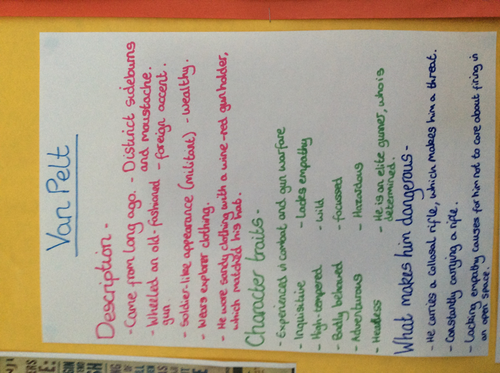 Van Pelt
Description -
- Came from long ago. - Distinct sideburns
and moustache.
- Wheeled an old fashioned - foreign accent.
gun.
- Soldier-like appearance (militant) - wealthy.
- Wears explorer clothing.
- He wore sandy clothing with a wine-red gun holder,
which matched his hat.
Character traits -
- Experienced in combat and gun warfare
- Inquisitive - Lacks empathy
- High-tempered - wild
- Badly behaved - focussed
- Adventurous - Hazardous
- Headless - He is an elite gunner, who is
determined.
What makes him dangerous -
- He carries a colossal rifle, which makes him a threat.
- Constantly carrying a rifle.
- Lacking empathy causes for him not to care about firing in
an open space.